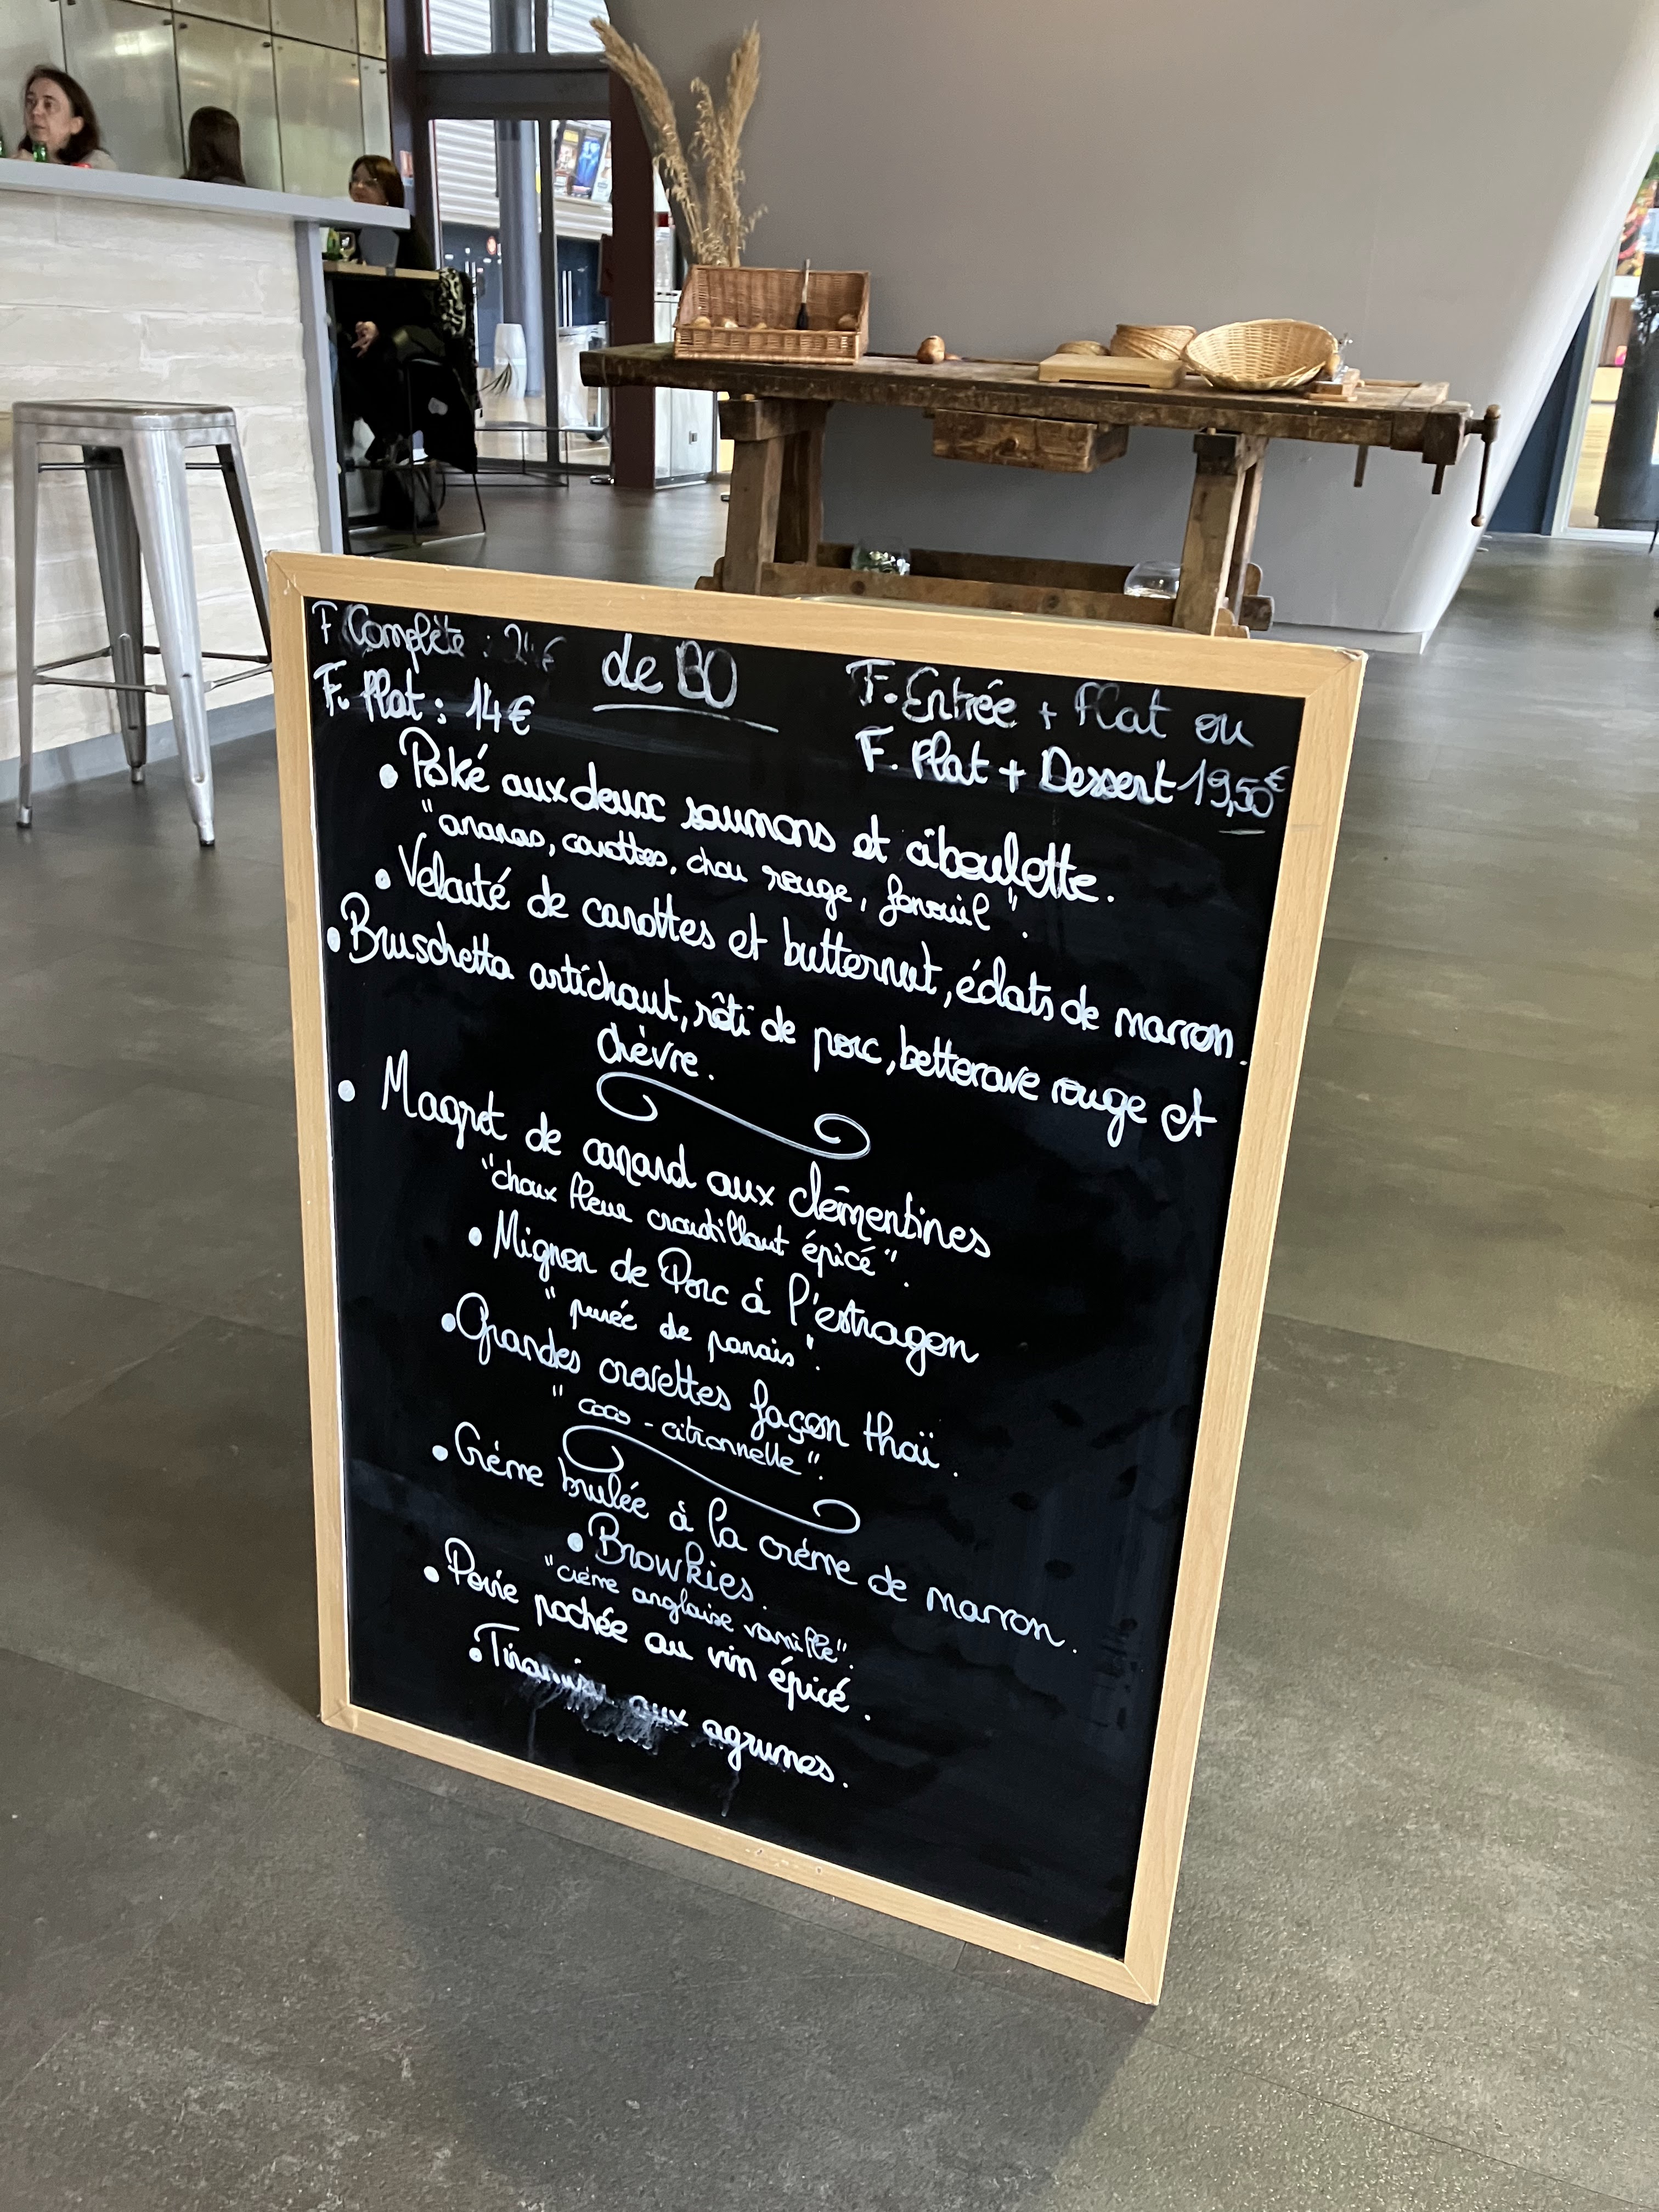 F. Complète : 24 €
de BO
F. Entrée + Plat ou
F. Plat : 14 €
F. Plat + Dessert 19,50€
• Poké aux deux saumons et ciboulette.
"ananas, carottes, chou rouge, fenouil".
• Velouté de carottes et butternut, éclats de marron.
• Bruschetta artichaut, rôti de porc, betterave rouge et
chèvre.
• Magret de canard aux clémentines
"choux fleur croustillant épicé".
• Mignon de Porc à l'estragon
"purée de panais".
• Grandes crevettes façon thaï.
"coco - citronnelle".
• Créme brulée à la créme de marron.
• Browkies.
"créme anglaise vanille".
• Poire pochée au vin épicé.
• Tiramisu aux agrumes.